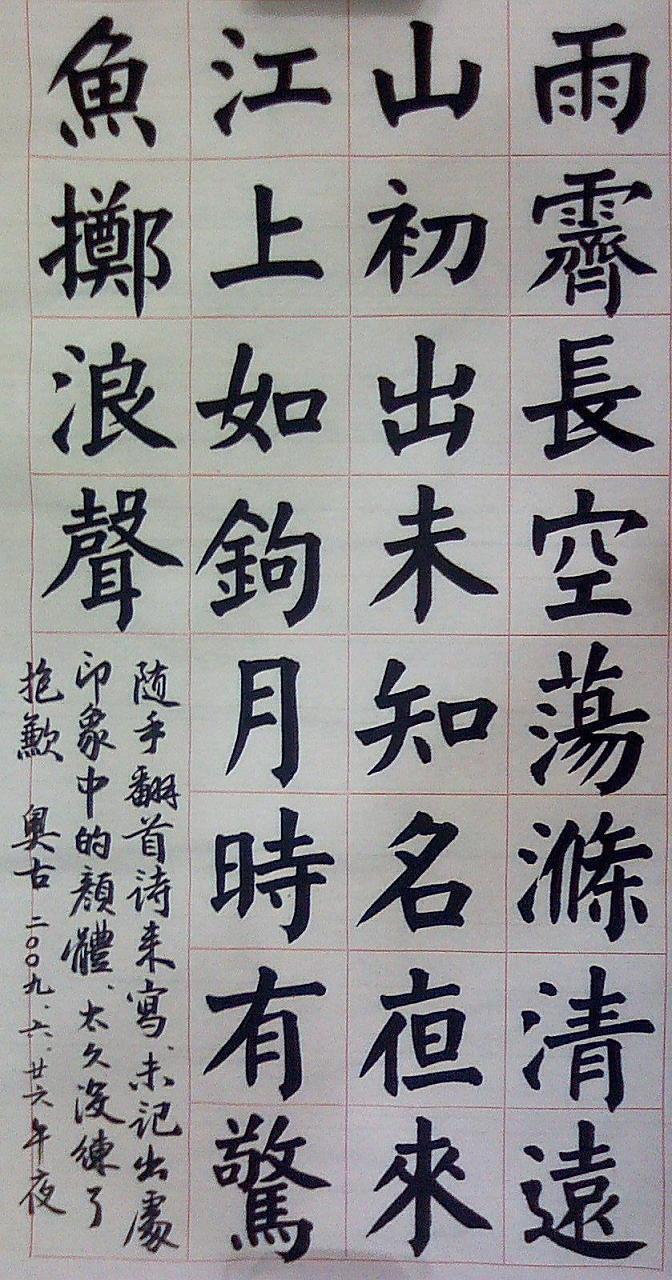 雨霽長空蕩滌清遠
山初出未知名亱來
江上如鉤月時有驚
魚擲浪聲
随手翻首诗来寫、未记出處
印象中的顔體、太久没練了
抱歉 奥古 二〇〇九、六、廿六午夜